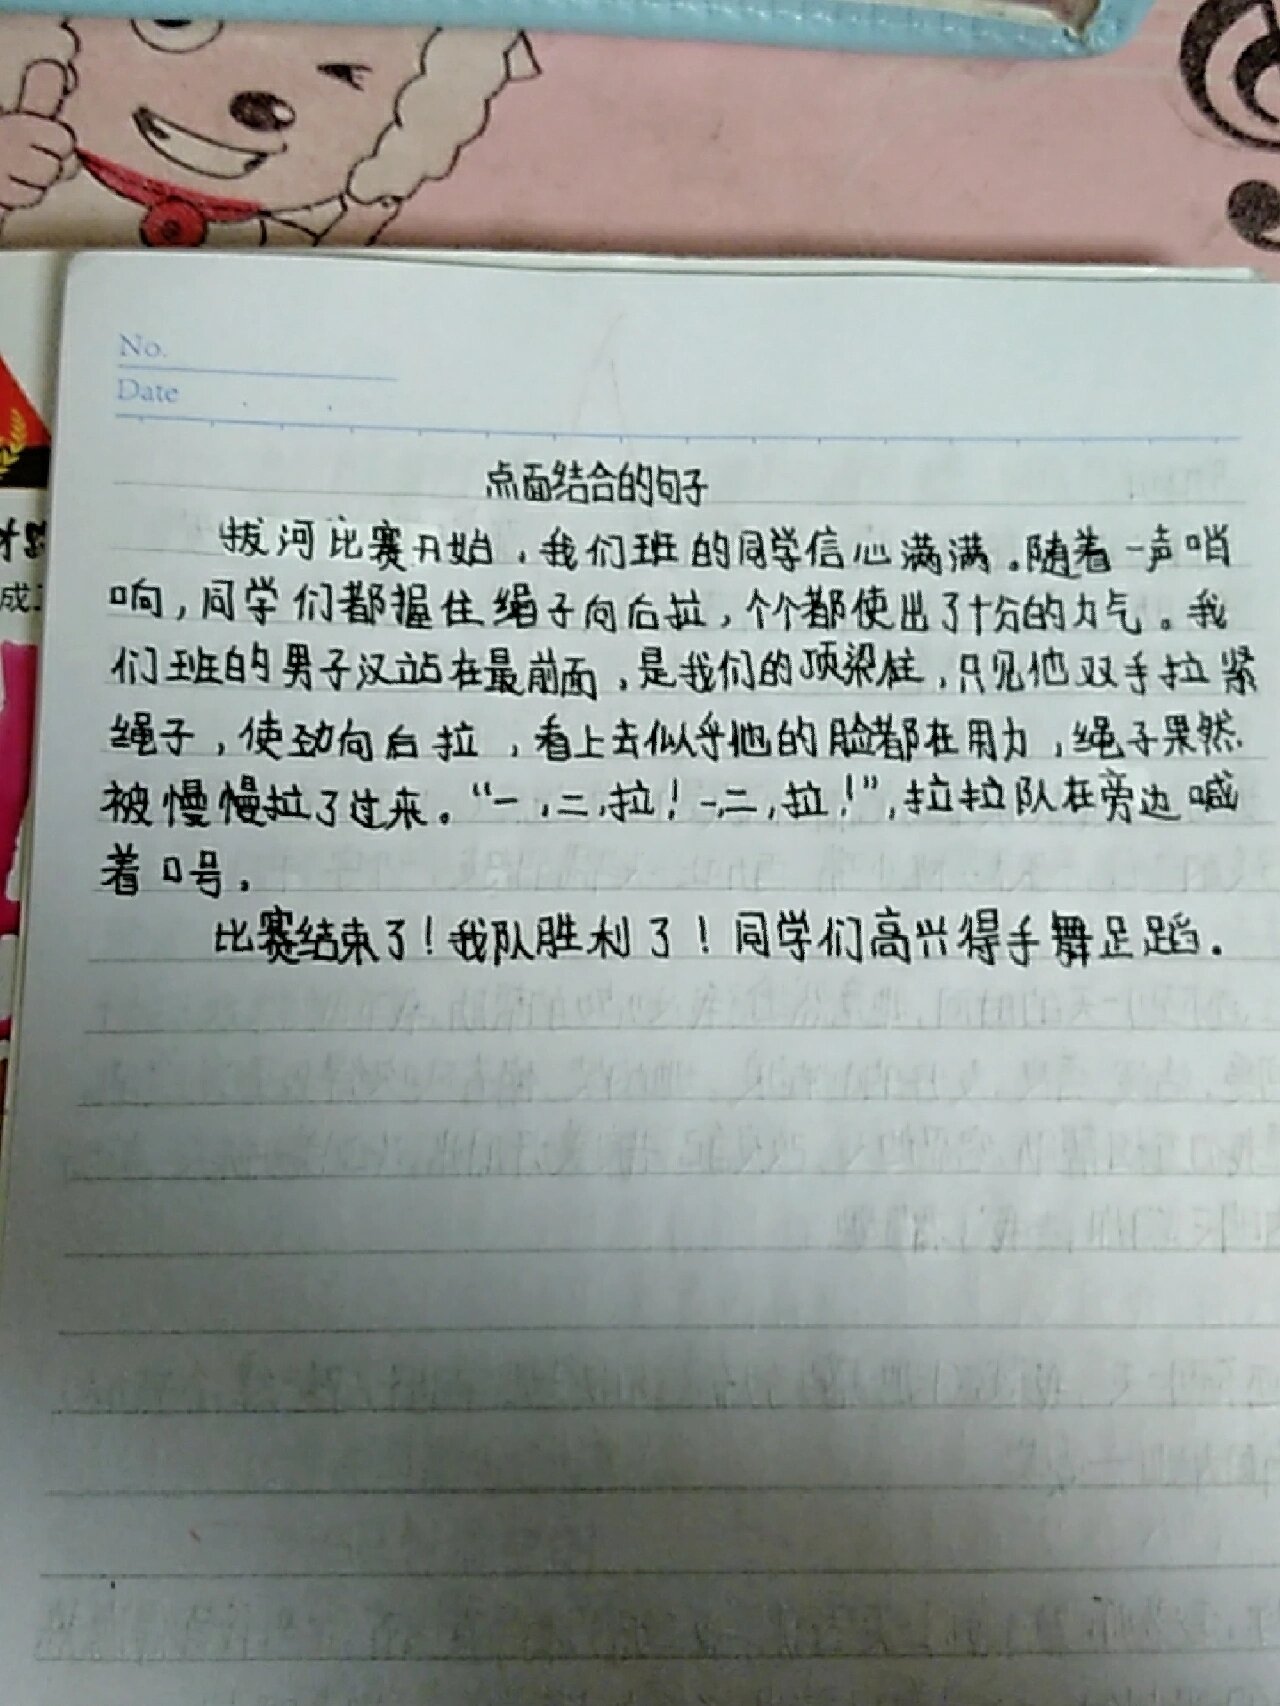 No.
Date
点面结合的句子
拔河比赛开始，我们班的同学信心满满。随着一声哨
响，同学们都握住绳子向后拉，个个都使出了十分的力气。我
们班的男子汉站在最前面，是我们的顶梁柱，只见他双手拉紧
绳子，使劲向后拉，看上去似乎他的脸都在用力，绳子果然
被慢慢拉了过来。“一，二，拉！一，二，拉！”，拉拉队在旁边喊
着口号。
比赛结束了！我队胜利了！同学们高兴得手舞足蹈。
成